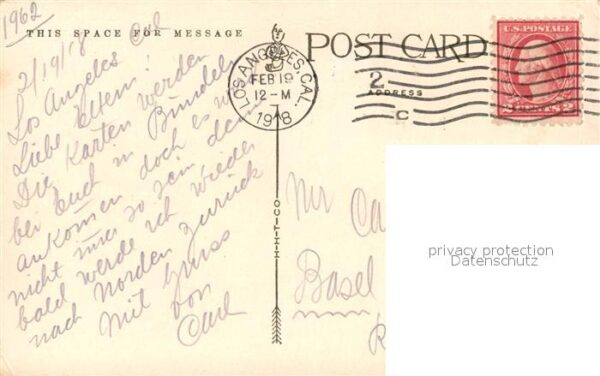 1962
THIS SPACE FOR MESSAGE
2/19/18 Cal
Los Angeles
Liebe Eltern!
Die Karten werden
bei Euch in Bündel
ankommen doch es
nicht so sein den
bald werde ich wieder
nach Norden zurück
mit Gruss
von
Carl
LOS ANGELES, CAL.
FEB 19
12-M
1918
POST CARD
2
ADDRESS
C
U.S. POSTAGE
2 CENTS 2
H-H-T-CO
Mr Ca
Basel
privacy protection
Datenschutz